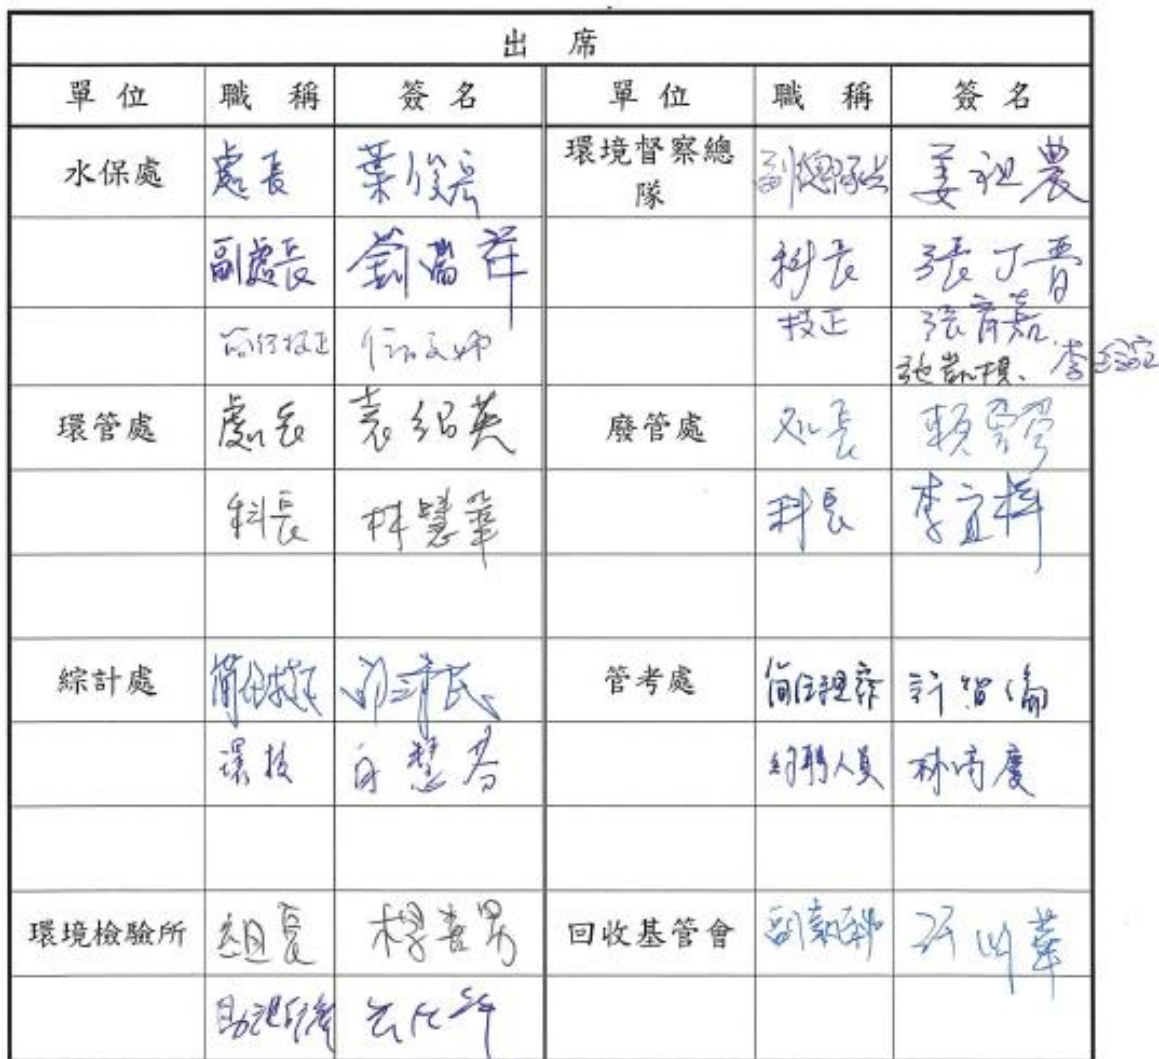 出 席
單 位 職 稱 簽 名 單 位 職 稱 簽 名
水保處 處長 葉俊宏 環境督察總隊 副總隊長 姜祖農
副處長 劉瑞祥 科長 張丁晉
簡任技正 技正 張育嘉
環管處 處長 袁紹英 廢管處 處長 賴瑩瑩
科長 林慧華 科長 李宜樺
綜計處 簡任技正 郭清民 管考處 簡任視察 許智倫
環技 白慧芬 約聘人員 林
環境檢驗所 組長 楊喜男 回收基管會 副執秘
助理研究員